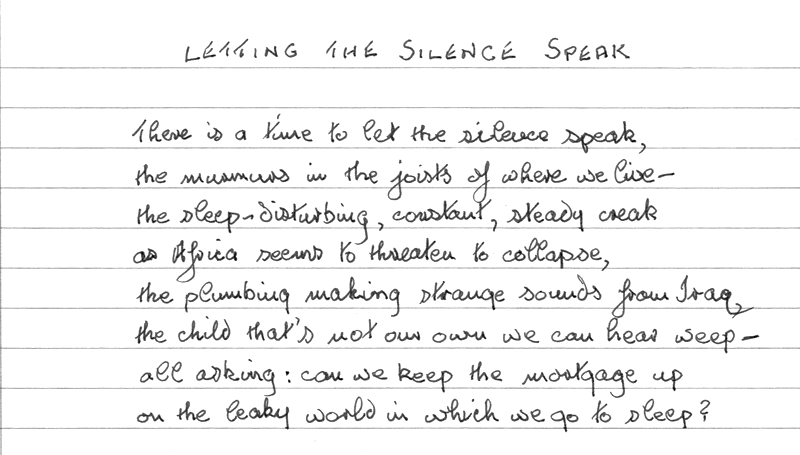 LETTING THE SILENCE SPEAK
There is a time to let the silence speak,
the murmurs in the joists of where we live–
the sleep-disturbing, constant, steady creak
as Africa seems to threaten to collapse,
the plumbing making strange sounds from Iraq,
the child that's not our own we can hear weep–
all asking: can we keep the mortgage up
on the leaky world in which we go to sleep?